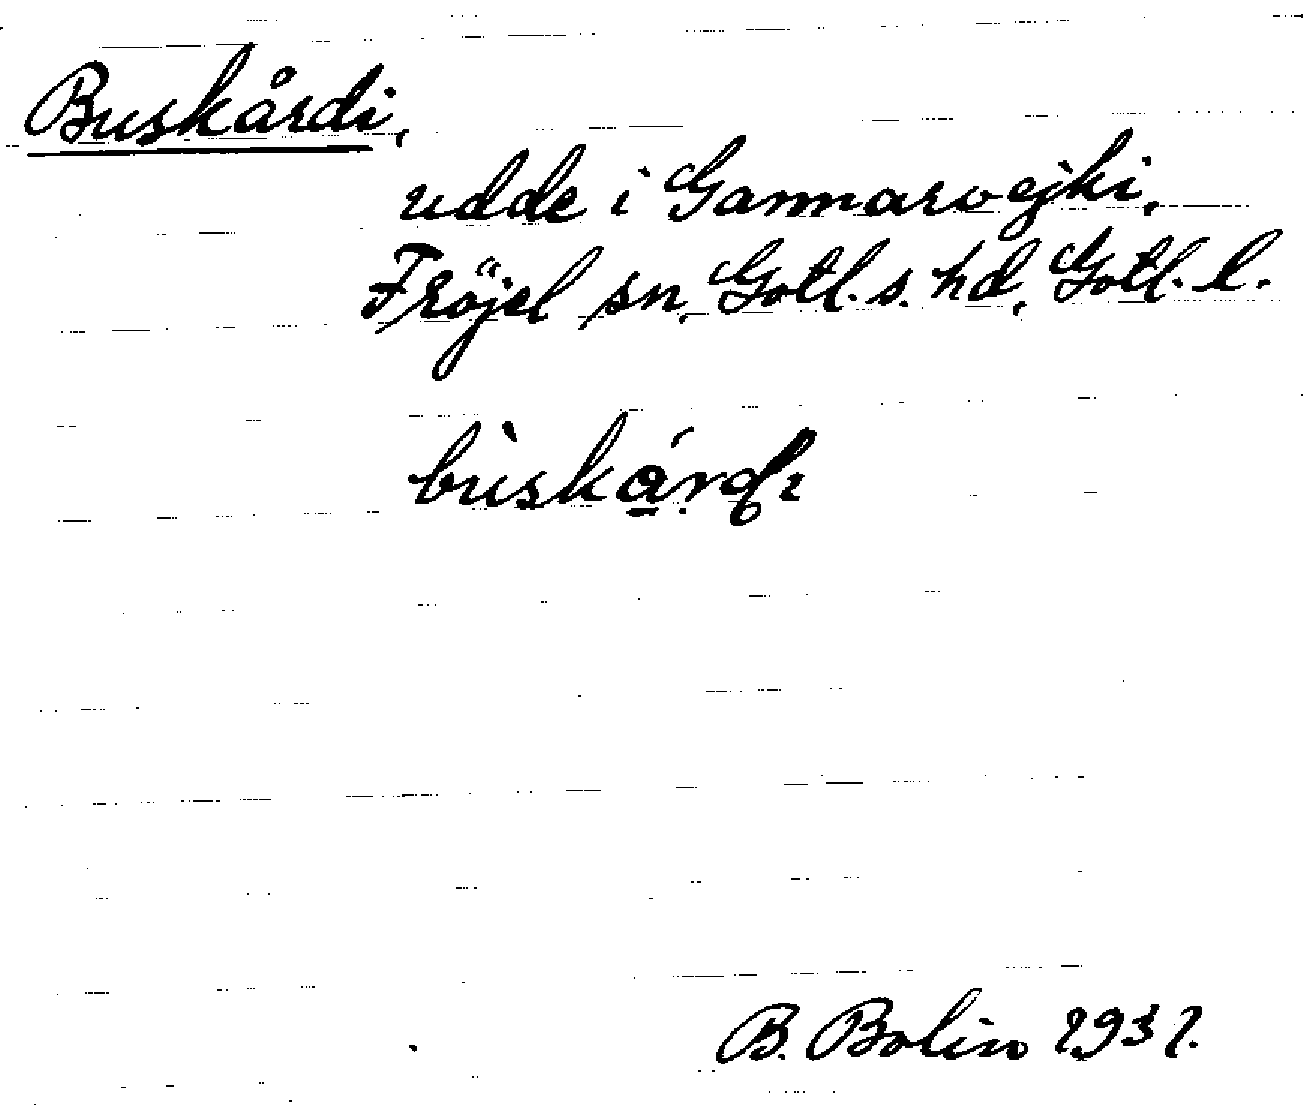 Buskårdi,
udde i Gannarvejki,
Fröjel sn, Gotl. s. hd, Gotl. l.
B. Bolin 1931.